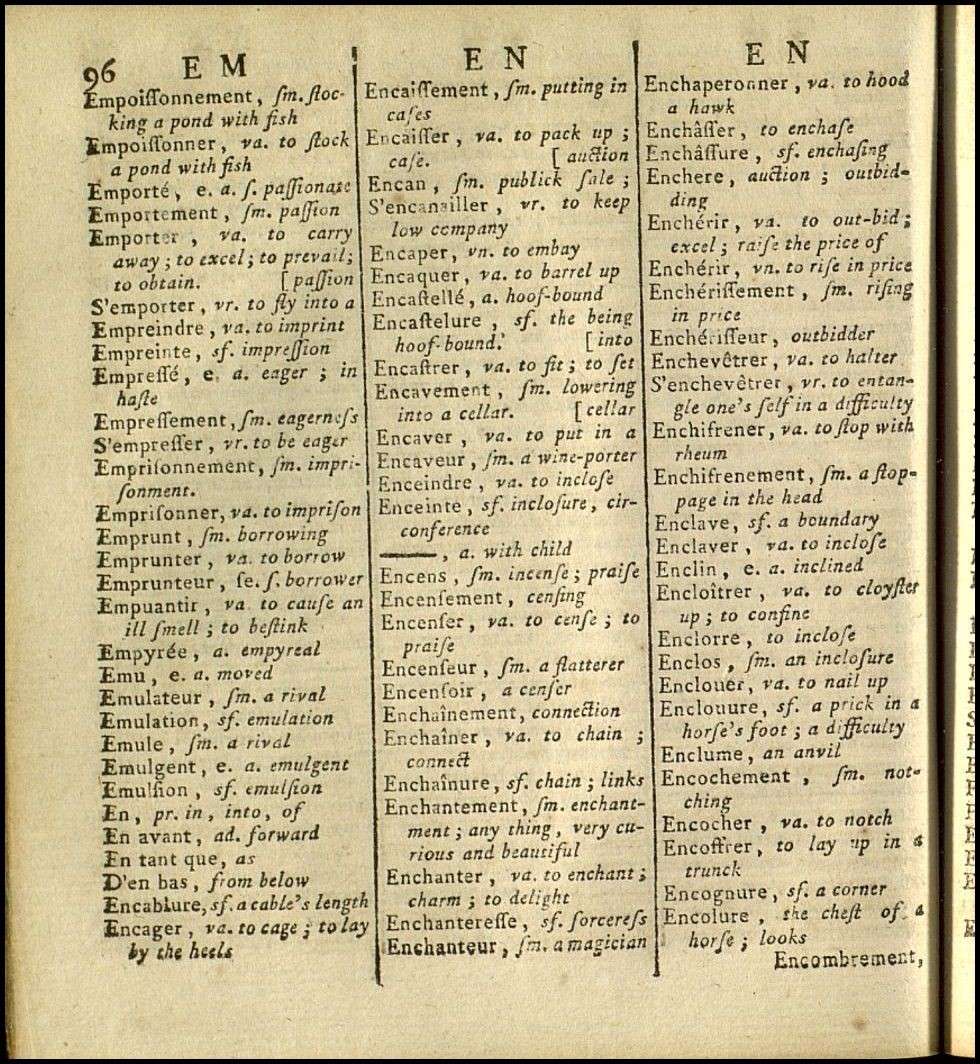 96 E M
Empoiſſonnement, ſm. ſtoc-
king a pond with fish
Empoiſſonner, va. to ſtock
a pond with fish
Emporté, e. a. ſ. paſſionate
Emportement, ſm. paſſion
Emporter, va. to carry
away; to excel; to prevail;
to obtain. [paſſion
S'emporter, vr. to fly into a
Empreindre, va. to imprint
Empreinte, sf. impreſſion
Empreſſé, e. a. eager; in
haſte
Empreſſement, ſm. eagerneſs
S'empreſſer, vr. to be eager
Empriſonnement, ſm. impri-
ſonment.
Empriſonner, va. to impriſon
Emprunt, ſm. borrowing
Emprunter, va. to borrow
Emprunteur, ſe. ſ. borrower
Empuantir, va. to cauſe an
ill ſmell; to beſtink
Empyrée, a. empyreal
Emu, e. a. moved
Emulateur, ſm. a rival
Emulation, sf. emulation
Emule, ſm. a rival
Emulgent, e. a. emulgent
Emulſion, sf. emulſion
En, pr. in, into, of
En avant, ad. forward
En tant que, as
D'en bas, from below
Encablure, sf. a cable's length
Encager, va. to cage; to lay
by the heels
E N
Encaiſſement, ſm. putting in
caſes
Encaiſſer, va. to pack up;
caſe. [auction
Encan, ſm. publick ſale;
S'encanailler, vr. to keep
low company
Encaper, vn. to embay
Encaquer, va. to barrel up
Encaſtellé, a. hoof-bound
Encaſtelure, sf. the being
hoof-bound. [into
Encaſtrer, va. to fit; to ſet
Encavement, ſm. lowering
into a cellar. [cellar
Encaver, va. to put in a
Encaveur, ſm. a wine-porter
Enceindre, va. to incloſe
Enceinte, sf. incloſure, cir-
conference
———, a. with child
Encens, ſm. incenſe; praiſe
Encenſement, cenſing
Encenſer, va. to cenſe; to
praiſe
Encenſeur, ſm. a flatterer
Encenſoir, a cenſer
Enchaînement, connection
Enchaîner, va. to chain;
connect
Enchaînure, sf. chain; links
Enchantement, ſm. enchant-
ment; any thing, very cu-
rious and beautiful
Enchanter, va. to enchant;
charm; to delight
Enchantereſſe, sf. ſorcereſs
Enchanteur, ſm. a magician
E N
Enchaperonner, va. to hood
a hawk
Enchâſſer, to enchaſe
Enchâſſure, sf. enchaſing
Enchere, auction; outbid-
ding
Enchérir, va. to out-bid;
excel; raiſe the price of
Enchérir, vn. to riſe in price
Enchériſſement, ſm. riſing
in price
Enchériſſeur, outbidder
Enchevêtrer, va. to halter
S'enchevêtrer, vr. to entan-
gle one's ſelf in a difficulty
Enchifrener, va. to ſtop with
rheum
Enchifrenement, ſm. a ſtop-
page in the head
Enclave, sf. a boundary
Enclaver, va. to incloſe
Enclin, e. a. inclined
Encloîtrer, va. to cloyſter
up; to confine
Enclorre, to incloſe
Enclos, ſm. an incloſure
Enclouer, va. to nail up
Enclouure, sf. a prick in a
horſe's foot; a difficulty
Enclume, an anvil
Encochement, ſm. not-
ching
Encocher, va. to notch
Encoffrer, to lay up in a
trunck
Encognure, sf. a corner
Encolure, the cheſt of a
horſe; looks
Encombrement,